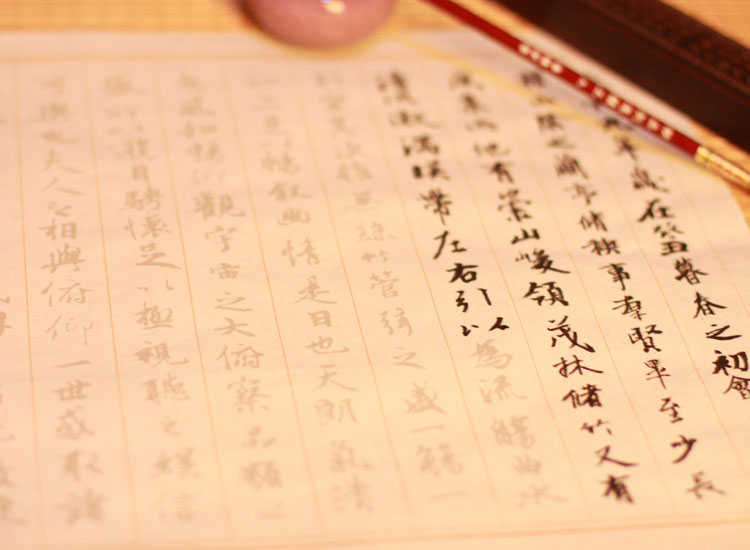 年歲在癸丑暮春之初會
山陰之蘭亭脩禊事羣賢畢至少長
咸集此地有崇山峻領茂林脩竹又有
清流激湍暎帶左右引以為流觴曲水
列坐其次雖無絲竹管弦之盛一觴一
詠亦足以暢叙幽情是日也天朗氣清
惠風和暢仰觀宇宙之大俯察品類之
盛所以遊目騁懷足以極視聽之娛信
可樂也夫人之相與俯仰一世或取諸